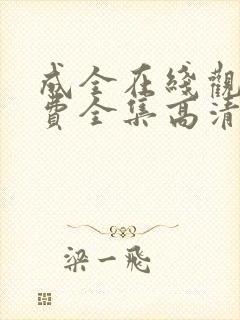 成全在綫觀
費全集高清
梁一飛